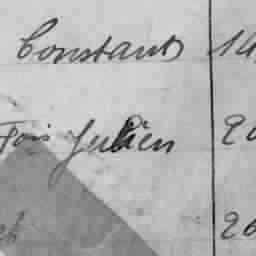 Constant 14
Fois Julien 20
26